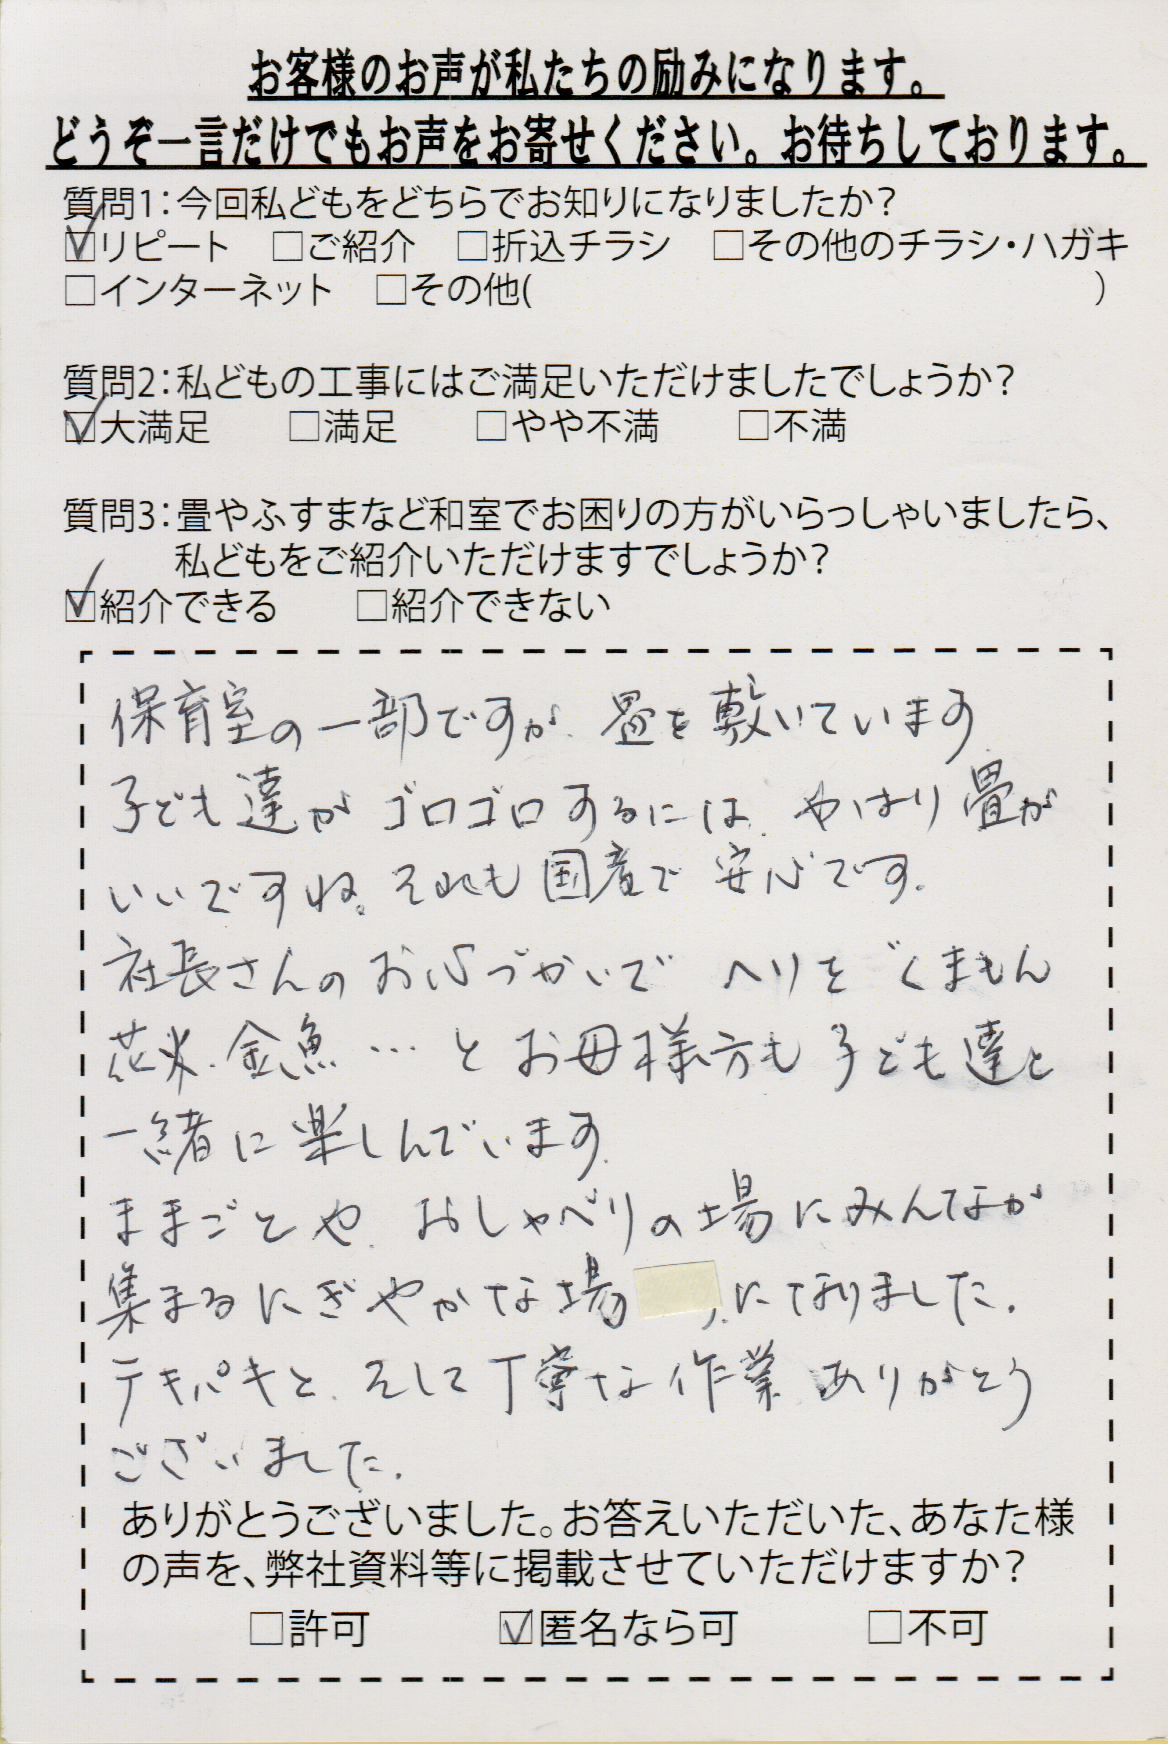 お客様のお声が私たちの励みになります。
どうぞ一言だけでもお声をお寄せください。お待ちしております。
質問1：今回私どもをどちらでお知りになりましたか？
☑リピート □ご紹介 □折込チラシ □その他のチラシ・ハガキ
□インターネット □その他( )
質問2：私どもの工事にはご満足いただけましたでしょうか？
☑大満足 □満足 □やや不満 □不満
質問3：畳やふすまなど和室でお困りの方がいらっしゃいましたら、
私どもをご紹介いただけますでしょうか？
☑紹介できる □紹介できない
保育室の一部ですが、畳を敷いています
子ども達がゴロゴロするには、やはり畳が
いいですね。それも国産で安心です。
社長さんのお心づかいで ヘリをくまもん
花火、金魚…とお母様方も子ども達と
一緒に楽しんでいます。
ままごとや、おしゃべりの場にみんなが
集まるにぎやかな場 になりました。
テキパキと、そして丁寧な作業ありがとう
ございました。
ありがとうございました。お答えいただいた、あなた様
の声を、弊社資料等に掲載させていただけますか？
□許可 ☑匿名なら可 □不可